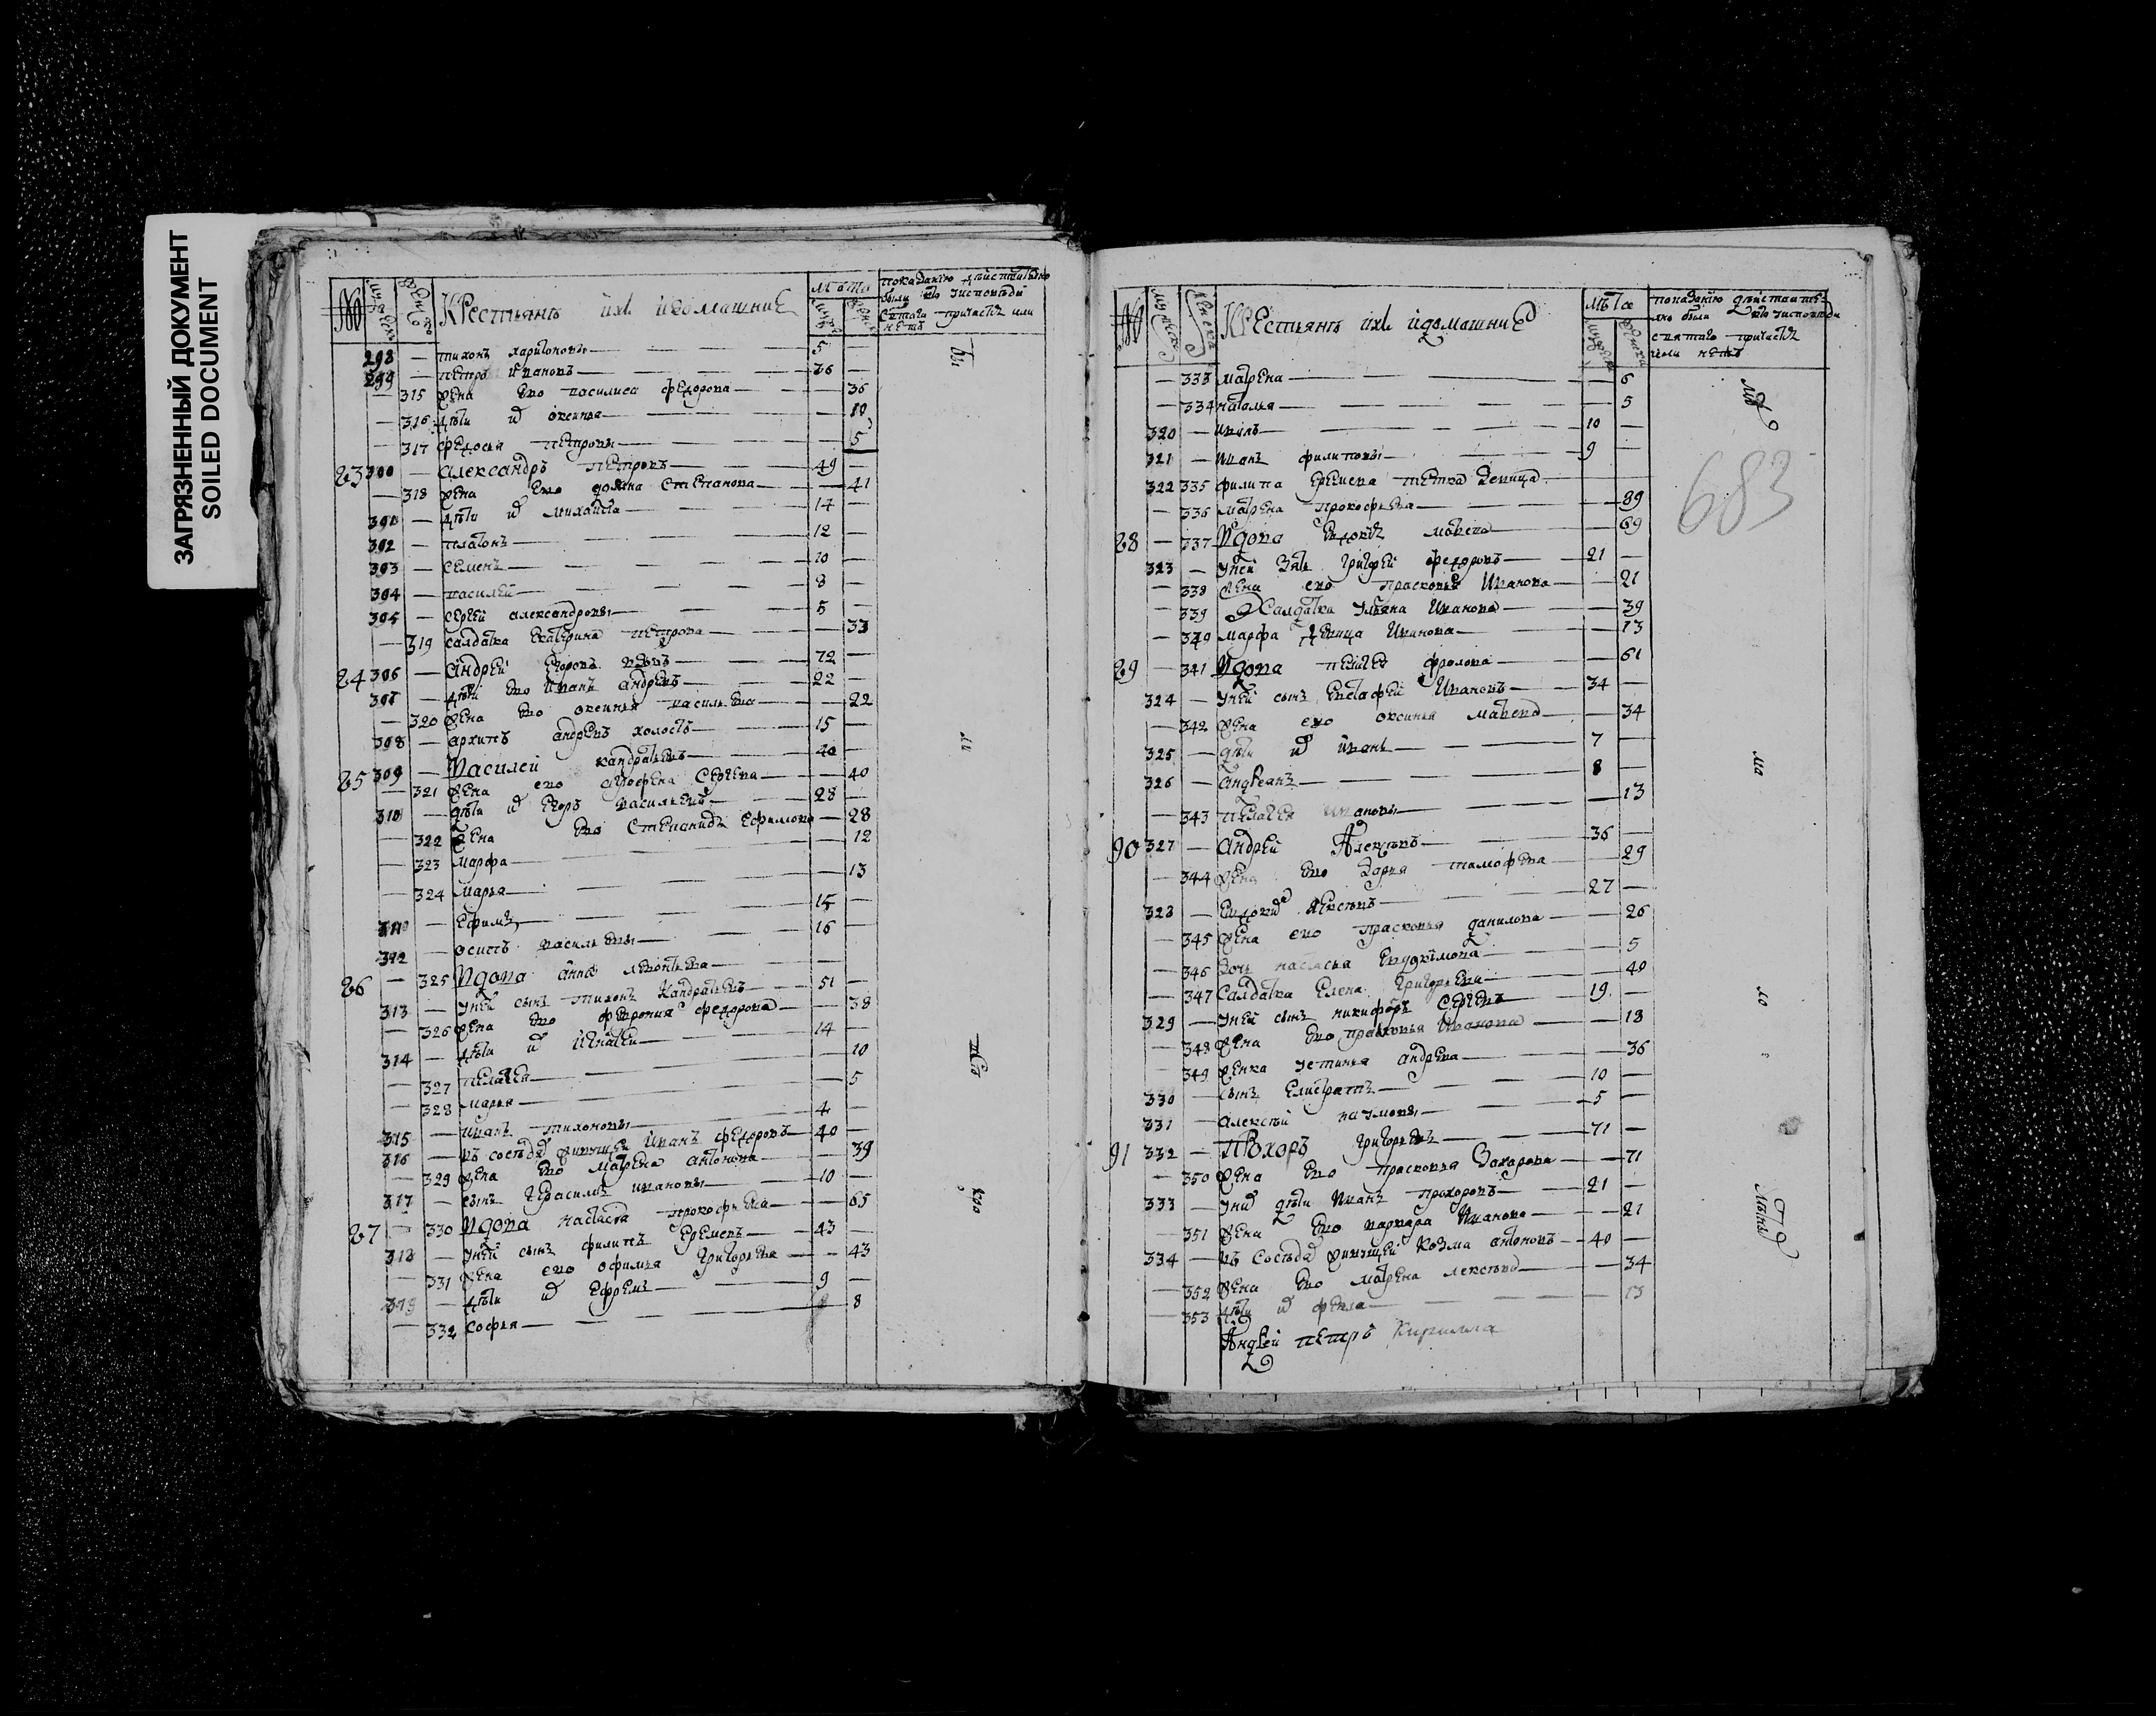 ЗАГРЯЗНЕННЫЙ ДОКУМЕНТ
SOILED DOCUMENT
№ мужеска женска Крестьянъ ихъ и домашние лѣта
298 — тихонъ харитоновы 5 —
299 — петръ ивановъ 36 —
— 315 жена ево василиса федорова — 36
— 316 дѣти их оксинья — 10
— 317 федосья петровы — 5
83 300 — александръ петровъ 49 —
— 318 жена ево домна степанова — 41
301 — дѣти их михаила 14 —
302 — платонъ 12 —
303 — семенъ 10 —
304 — василей 8 —
305 — сергей александровы 5 —
— 319 салдатка екатерина петрова — 33
84 306 — андрей егоровъ вдовъ 72 —
307 — дѣти ево иванъ андревъ 22 —
— 320 жена ево оксинья василева — 22
308 — архипъ андревъ холостъ 15 —
85 309 — василей кандратьевъ 40 —
— 321 жена ево сергева — 40
310 — дѣти их егоръ васильевъ 28 —
— 322 жена ево степанида ефимова — 28
— 323 марфа — 12
— 324 марья — 13
311 — ефимъ 15 —
312 — осипъ васильевы 16 —
86 — 325 вдова анна леонтьева —
313 — у ней сынъ тихонъ кандратьевъ 51 —
— 326 жена ево феврония федорова — 38
314 — дѣти их игнатей 14 —
— 327 пелагея — 10
— 328 марья — 5
315 — иванъ тихоновы 4 —
316 — въ соседѣх живущей иванъ федоровъ 40 —
— 329 жена ево матрена антонова — 39
317 — сынъ герасимъ ивановы 10 —
87 — 330 вдова настася прокофьева — 65
318 — у ней сынъ филипъ еремевъ 43 —
— 331 жена ево офимья григорьева — 43
319 — дѣти их ефремъ 9 —
— 332 софья — 8
№ мужеска женска Крестьянъ ихъ и домашние лѣта
— 333 матрена — 6
— 334 наталья — 5
320 — 10 —
321 — иванъ филиповы 9 —
322 335 филипа еремева тетка девица
— 336 матрена прокофьева — 89
88 — 337 вдова матвева — 69
323 — у ней зять григорей федоровъ 21 —
— 338 жена ево прасковья иванова — 21
— 339 салдатка ульяна иванова — 39
— 340 марфа девица иванова — 13
89 — 341 вдова пелагея фролова — 61
324 — у ней сынъ евстафей ивановъ 34 —
— 342 жена ево оксинья матвева — 34
325 — дѣти их иванъ 7 —
326 — андреянъ 8 —
— 343 пелагея ивановы — 13
90 327 — андрей алексѣевъ 36 —
— 344 жена ево дарья тимофева — 29
328 — евдокимъ алексѣевъ 27 —
— 345 жена ево прасковья данилова — 26
— 346 дочь настасья евдокимова — 5
— 347 салдатка елена григорьева — 40
329 — у ней сынъ никифоръ сергевъ 19 —
— 348 жена ево прасковья иванова — 18
— 349 женка устинья андрева — 36
330 — сынъ елистратъ 10 —
331 — алексѣй наумовы 5 —
91 332 — прохоръ григорьевъ 71 —
— 350 жена ево прасковья захарова — 71
333 — у них дѣти иванъ прохоровъ 21 —
— 351 жена ево варвара иванова — 21
334 — въ соседѣх живущей козма антоновъ 40 —
— 352 жена ево матрена алексѣева — 34
— 353 дѣти их фекла — 13
андрей петръ кирилла
683